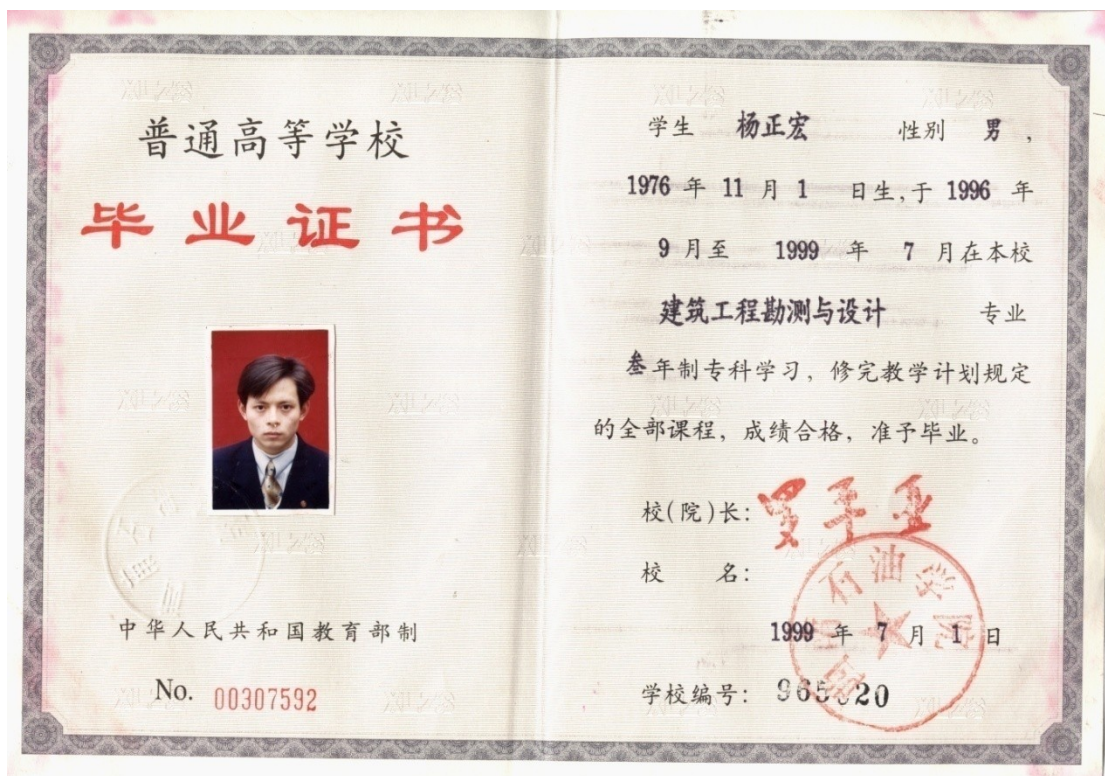 普通高等学校
毕业证书
中华人民共和国教育部制
No. 00307592
学生 杨正宏 性别 男,
1976 年 11 月 1 日生,于 1996 年
9 月至 1999 年 7 月在本校
建筑工程勘测与设计 专业
叁年制专科学习, 修完教学计划规定
的全部课程, 成绩合格, 准予毕业。
校(院)长: 罗平亚
校 名:
西南石油学院
1999 年 7 月 1 日
学校编号: